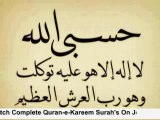 حسبي الله
لا إله إلا هو عليه توكلت
وهو رب العرش العظيم
tch Complete Quran-e-Kareem Surah's On J